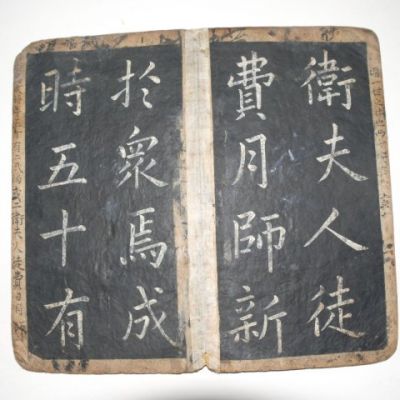 衛夫人徒
費月師新
於眾焉成
時五十有